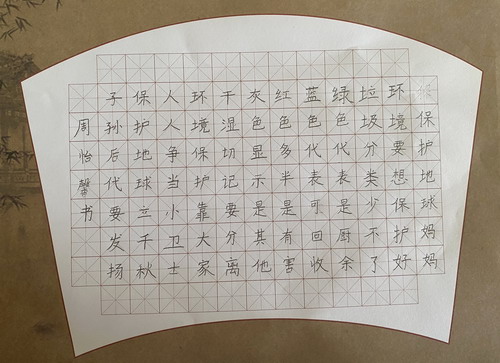 保护地球妈妈
环境要想保护好
垃圾分类少不了
绿色代表是厨余
蓝色代表可回收
红色多半是有害
灰色显示是其他
干湿切记要分离
环境保护靠大家
人人争当小卫士
保护地球立千秋
子孙后代要发扬
周怡馨书